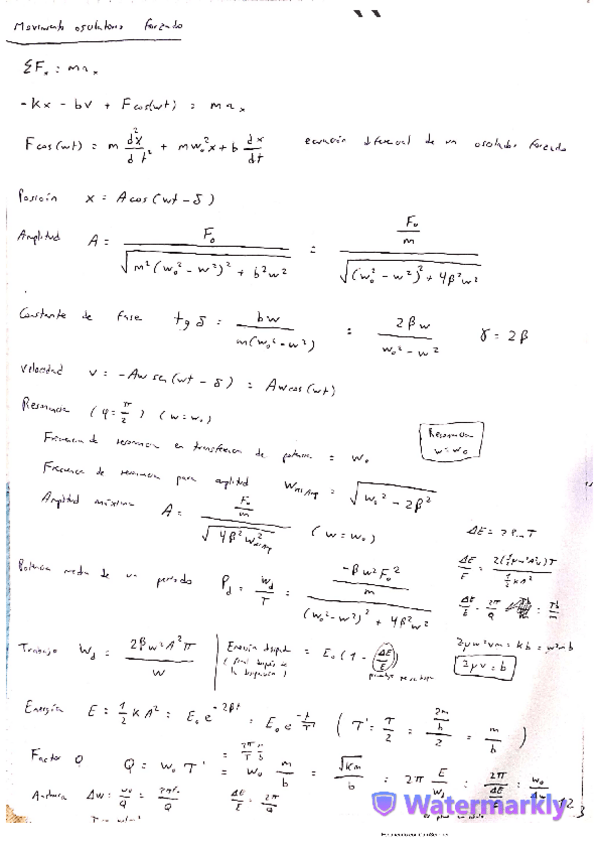 Movimiento oscilatorio forzado
ΣFₓ = maₓ
-kx - bv + F cos(wt) = maₓ
F cos(wt) = m d²x/dt² + mw₀²x + b dx/dt ecuación diferencial de un oscilador forzado
Posición x = A cos(wt - δ)
Amplitud A = F₀ / √(m²(w₀² - w²)² + b²w²) = (F₀/m) / √((w₀² - w²)² + 4β²w²)
Constante de fase tg δ = bw / m(w₀² - w²) = 2βw / (w₀² - w²) γ = 2β
Velocidad v = -Aw sen(wt - δ) = Aw cos(wt)
Resonancia (φ = π/2) (w = w₀)
Resonancia w = w₀
Frecuencia de resonancia en transferencia de potencia = w₀
Frecuencia de resonancia para amplitud w = √(w₀² - 2β²)
Amplitud máxima A = (F₀/m) / √(4β²w²) (w = w₀)
Potencia media de un periodo P_d = w_d/T = (-βw²F₀²/m) / ((w₀² - w²)² + 4β²w²)
ΔE/E = 2(½μw²A²v)T / ½kA²
ΔE/E = 2π/Q = Tb/m
Trabajo W_d = 2βw²A²π / w
Energía = E₀(1 - ΔE/E)
2μv = b
Energía E = ½kA² = E₀e^(-2βt) = E₀e^(-t/T') (T' = T/2 = (2m/b)/2 = m/b)
Factor Q Q = w₀T' = w₀ m/b = √km/b = 2π E/W_d = 2π/(ΔE/E) = w₀/Δw
Anchura Δw = w₀/Q ΔE/E = 2π/Q
Watermarkly